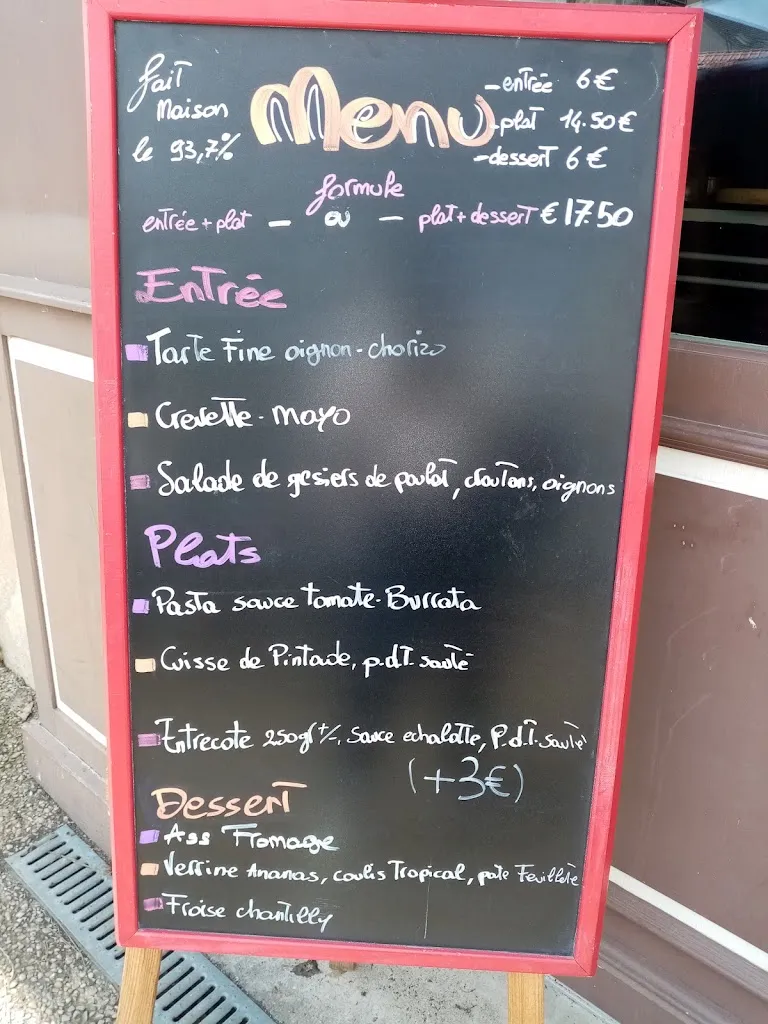 fait
Maison
le 93,7%
Menu
-entrée 6€
-plat 14.50€
-dessert 6€
formule
entrée + plat - ou - plat + dessert € 17.50
Entrée
Tarte Fine oignon - chorizo
Crevette - Mayo
Salade de gesiers de poulat, croutons, oignons
Plats
Pasta sauce tomate - Burrata
Cuisse de Pintade, p.d.t. sauté
Entrecote 250gr +/-, sauce echalotte, P.d.T. sauté
(+3€)
Dessert
Ass Fromage
Verrine Ananas, coulis Tropical, pate Feuilleté
Fraise chantilly